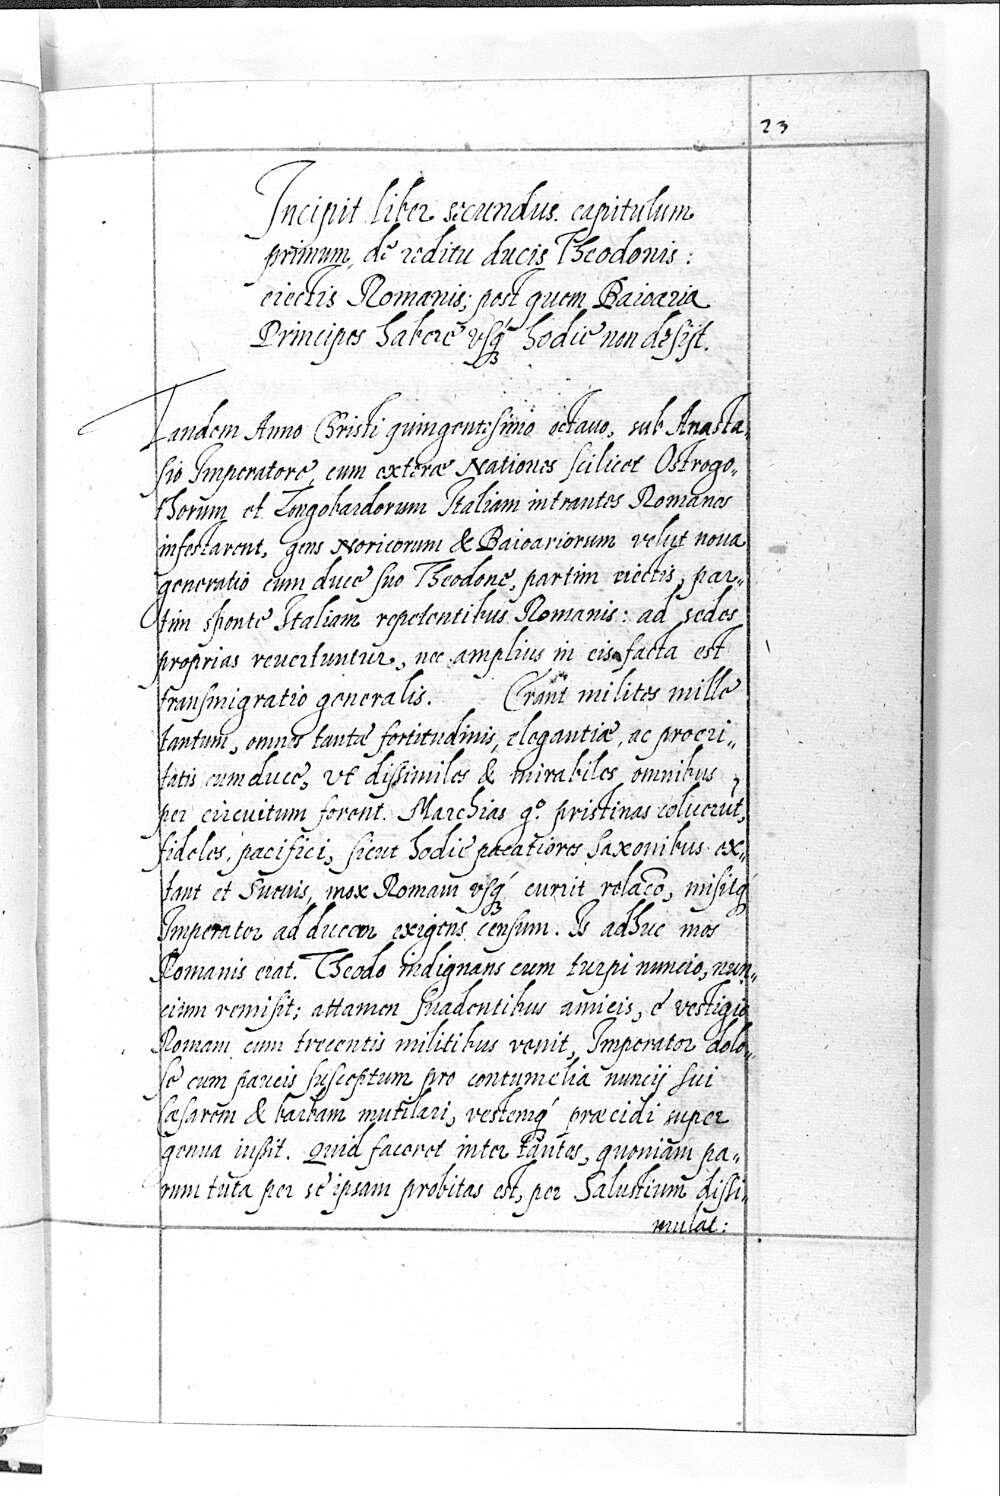 23
Incipit liber secundus. capitulum
primum, de reditu ducis Theodonis:
eiectis Romanis; post quem Baioaria
Principes habere vsq́ꝫ hodie non desijt.
Tandem Anno Christi quingentesimo octauo, sub Anasta„
sio Imperatore, cum exteræ Nationes scilicet Ostrogo„
thorum et Longobardorum Italiam intrantes Romanos
infestarent, gens Noricorum & Baioariorum velut noua
generatio cum duce suo Theodone, partim eiectis, par„
tim sponte Italiam repetentibus Romanis: ad sedes
proprias reuertuntur, nec amplius in eis facta est
transmigratio generalis. Erant milites mille
tantum, omnes tantæ fortitudinis, elegantiæ, ac proceri„
tatis cum duce, vt dissimiles & mirabiles omnibus
per circuitum forent. Marchias qͦ. pristinas coluerūt,
fideles, pacifici, sicut hodie pacatiores Saxonibus ex„
tant et Sueuis, mox Romam vsq́ꝫ currit relac̄o, misitq́ꝫ
Imperator ad ducem exigens censum. Is adhuc mos
Romanis erat. Theodo indignans cum turpi nuncio, nun„
cium remisit; attamen suadentibus amicis, e vestigio
Romam cum trecentis militibus venit, Imperator dolo„
se cum paucis susceptum pro contumelia nuncij sui
cæsarem & barbam mutilari, vestemq́ꝫ præcidi super
genua iussit. Quid faceret inter tantos, quoniam pa„
rum tuta per se ipsam probitas est, per Salustium dissi„
mulat: